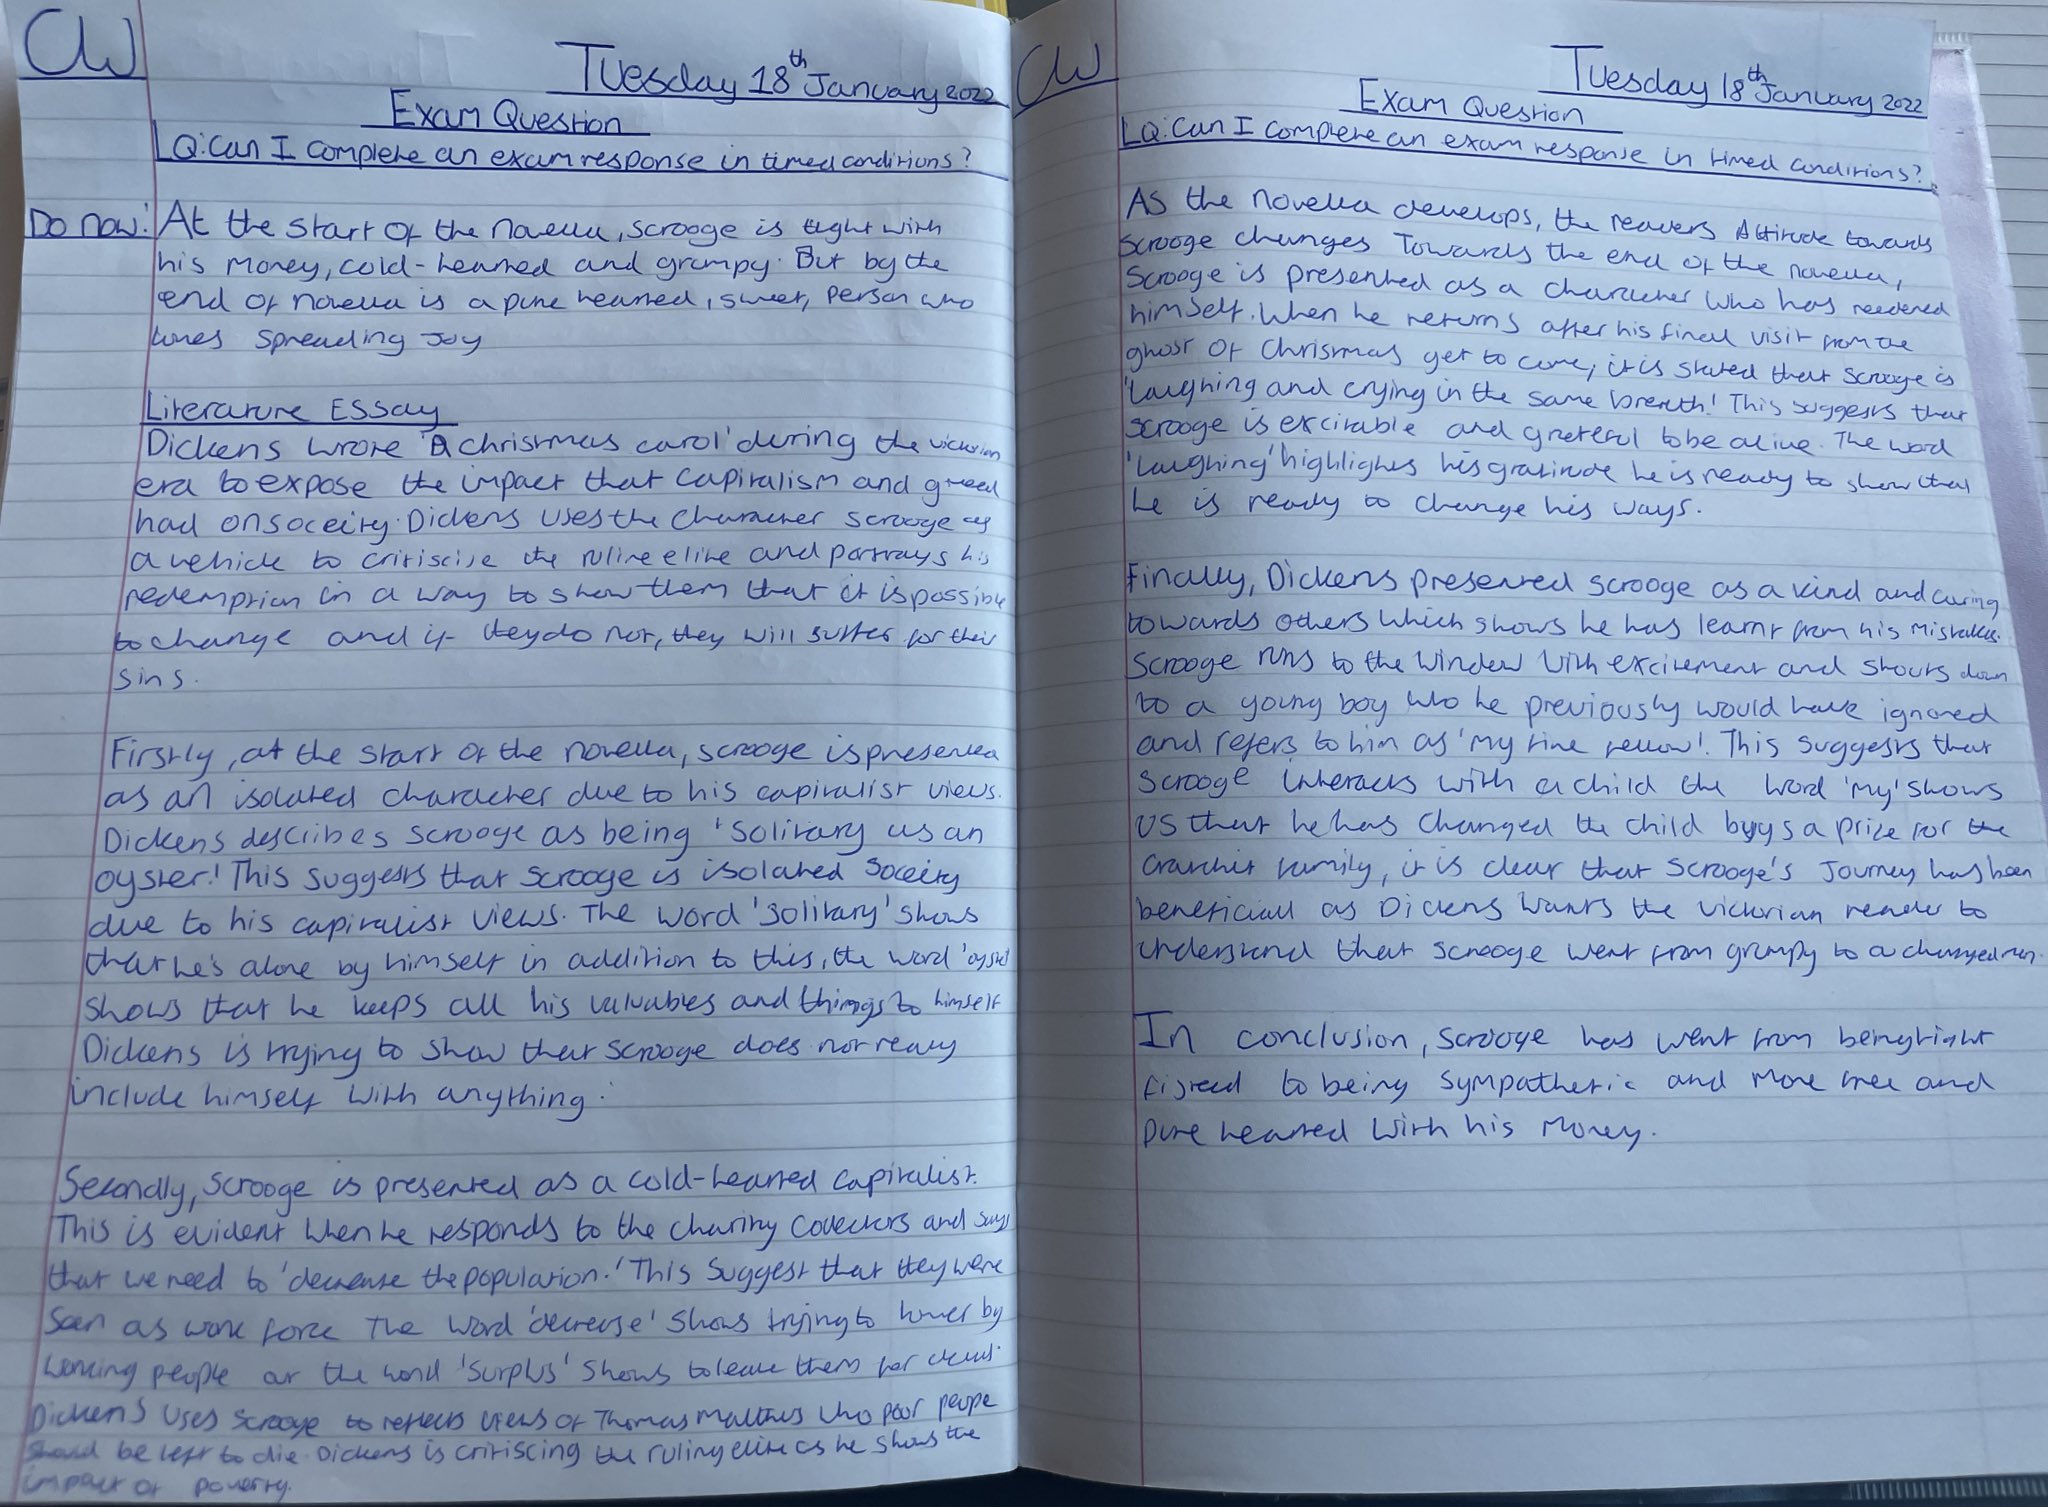 CW
Tuesday 18th January 2022
Exam Question
LQ: Can I complete an exam response in timed conditions?
Do now: At the start of the novella, scrooge is tight with
his money, cold-hearted and grumpy. But by the
end of novella is a pure hearted, sweet, person who
loves spreading Joy
Literature Essay
Dickens wrote 'A christmas carol' during the victorian
era to expose the impact that capitalism and greed
had on soceity. Dickens uses the character scrooge as
a vehicle to critiscise the ruline elite and portrays his
redemption in a way to show them that it is possible
to change and if they do not, they will suffer for their
sins.
Firstly, at the start of the novella, scrooge is presented
as an isolated character due to his capitalist views.
Dickens describes scrooge as being 'solitary as an
oyster.' This suggests that scrooge is isolated soceity
due to his capitalist views. The word 'solitary' shows
that he's alone by himself in addition to this, the word 'oyster
shows that he keeps all his valuables and things to himself
Dickens is trying to show that scrooge does not really
include himself with anything.
Secondly, scrooge is presented as a cold-hearted capitalist.
This is evident when he responds to the charity collectors and says
that we need to 'decrease the population.' This suggest that they were
seen as work force The word 'decrease' shows trying to lower by
people or the word 'surplus' shows to leave them for dead.
Dickens uses scrooge to reflects views of Thomas Malthus who poor people
should be left to die. Dickens is critiscing the ruling elite as he shows the
impact of poverty.
CW
Tuesday 18th January 2022
Exam Question
LQ: Can I complete an exam response in timed conditions?
As the novella develops, the readers Attitude towards
scrooge changes Towards the end of the novella,
Scrooge is presented as a character who has reedemed
himself. When he returns after his final visit from the
ghost of Christmas yet to come, it is stated that scrooge is
'laughing and crying in the same breath.' This suggests that
scrooge is excitable and grateful to be alive. The word
'laughing' highlighes his gratitude he is ready to show that
he is ready to change his ways.
Finally, Dickens presented scrooge as a kind and caring
towards others which shows he has learnt from his mistakes.
Scrooge runs to the window with excitement and shouts down
to a young boy who he previously would have ignored
and refers to him as 'my fine fellow'. This suggests that
scrooge interacts with a child the word 'my' shows
us that he has changed the child buys a prize for the
Cratchit family, it is clear that scrooge's Journey has been
beneficiall as Dickens wants the victorian reader to
understand that scrooge went from grumpy to a changed man.
In conclusion, scrooge has went from being tight
fisted to being sympathetic and more free and
pure hearted with his money.